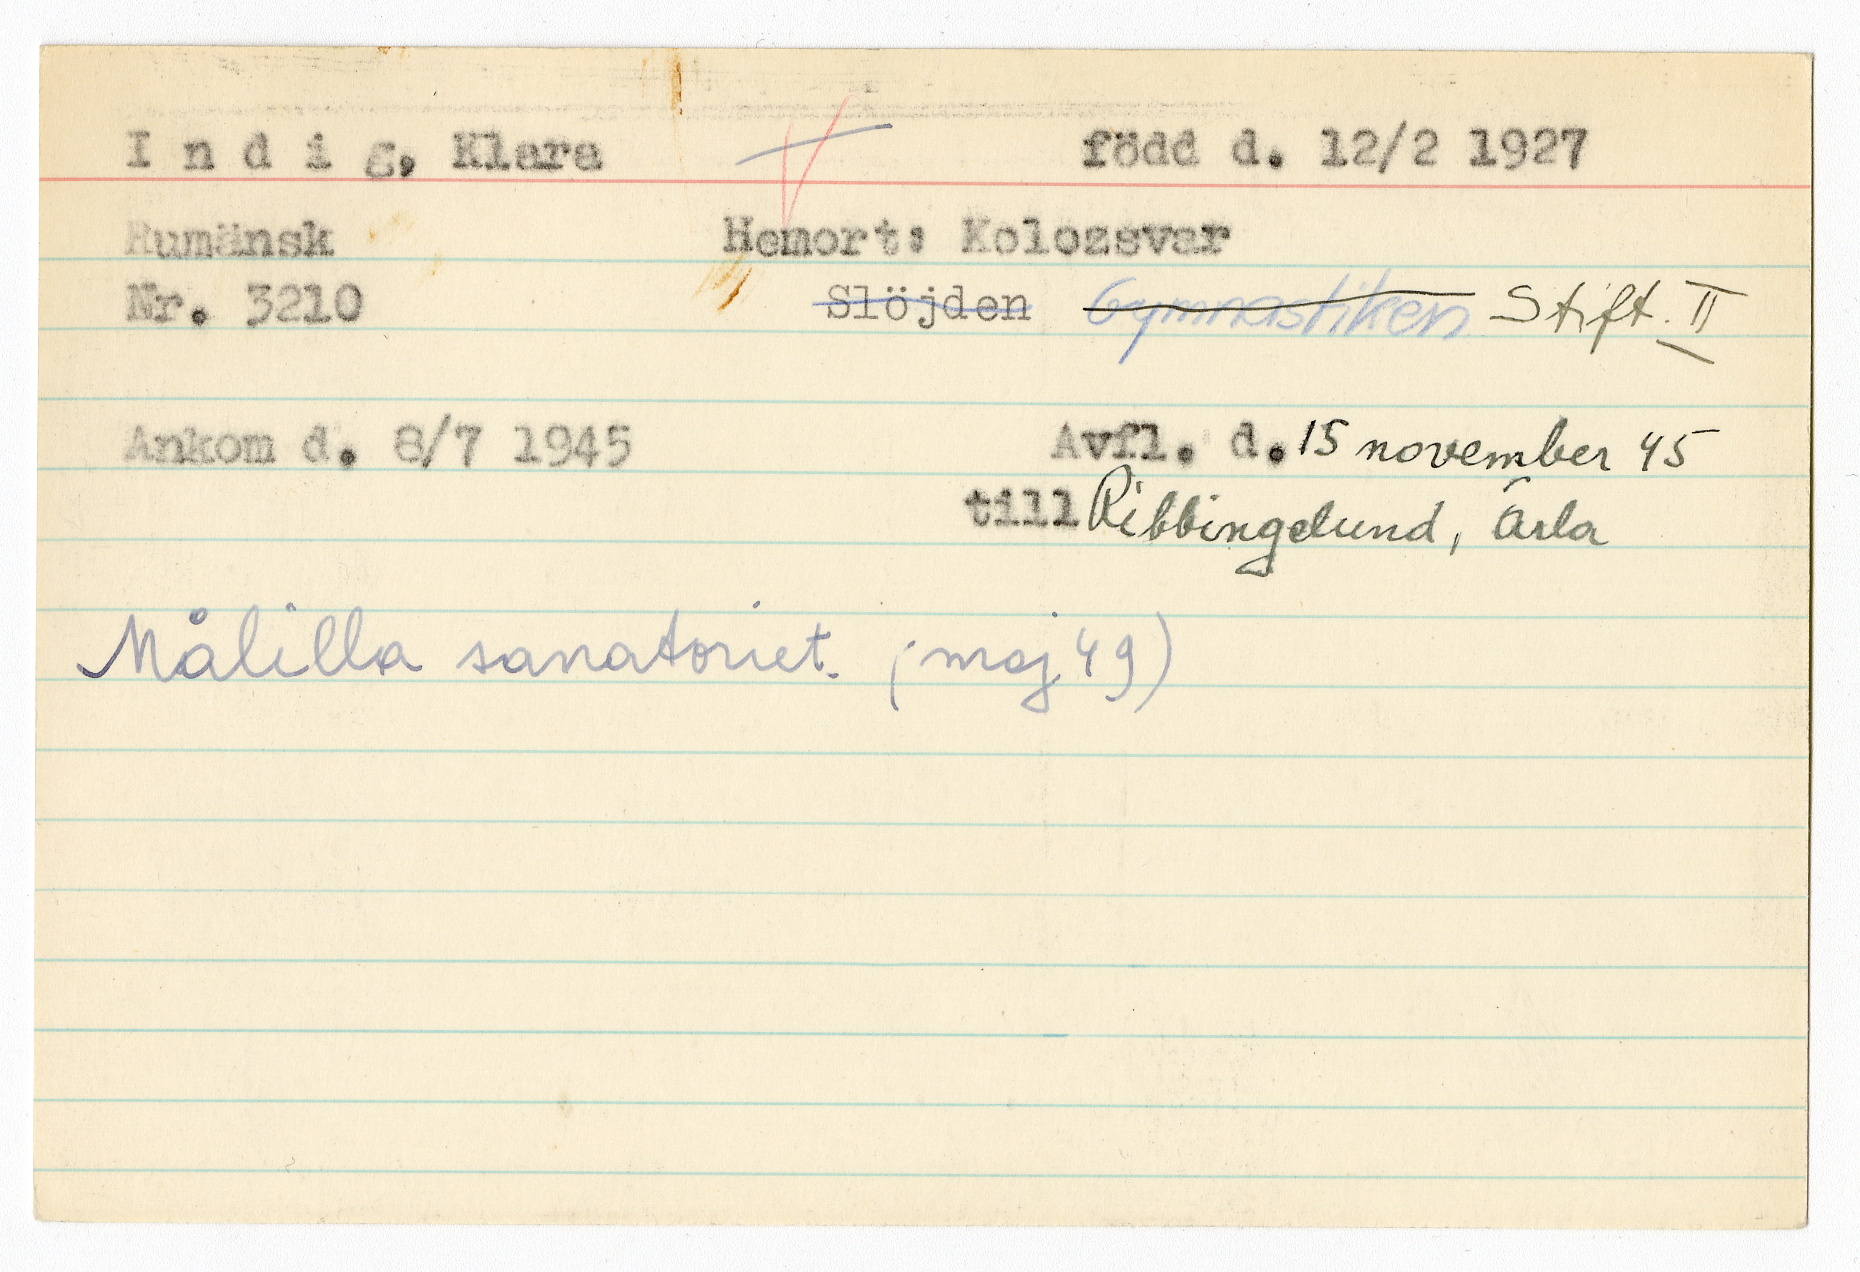 I n d i g, Klara född d. 12/2 1927
Rumänsk Hemort: Kolozsvar
Nr. 3210 Slöjden Gymnastiken Stift. II
Ankom d. 8/7 1945 Avfl. d. 15 november 45
till Ribbingelund, Ärla
Målilla sanatoriet. (maj 49)